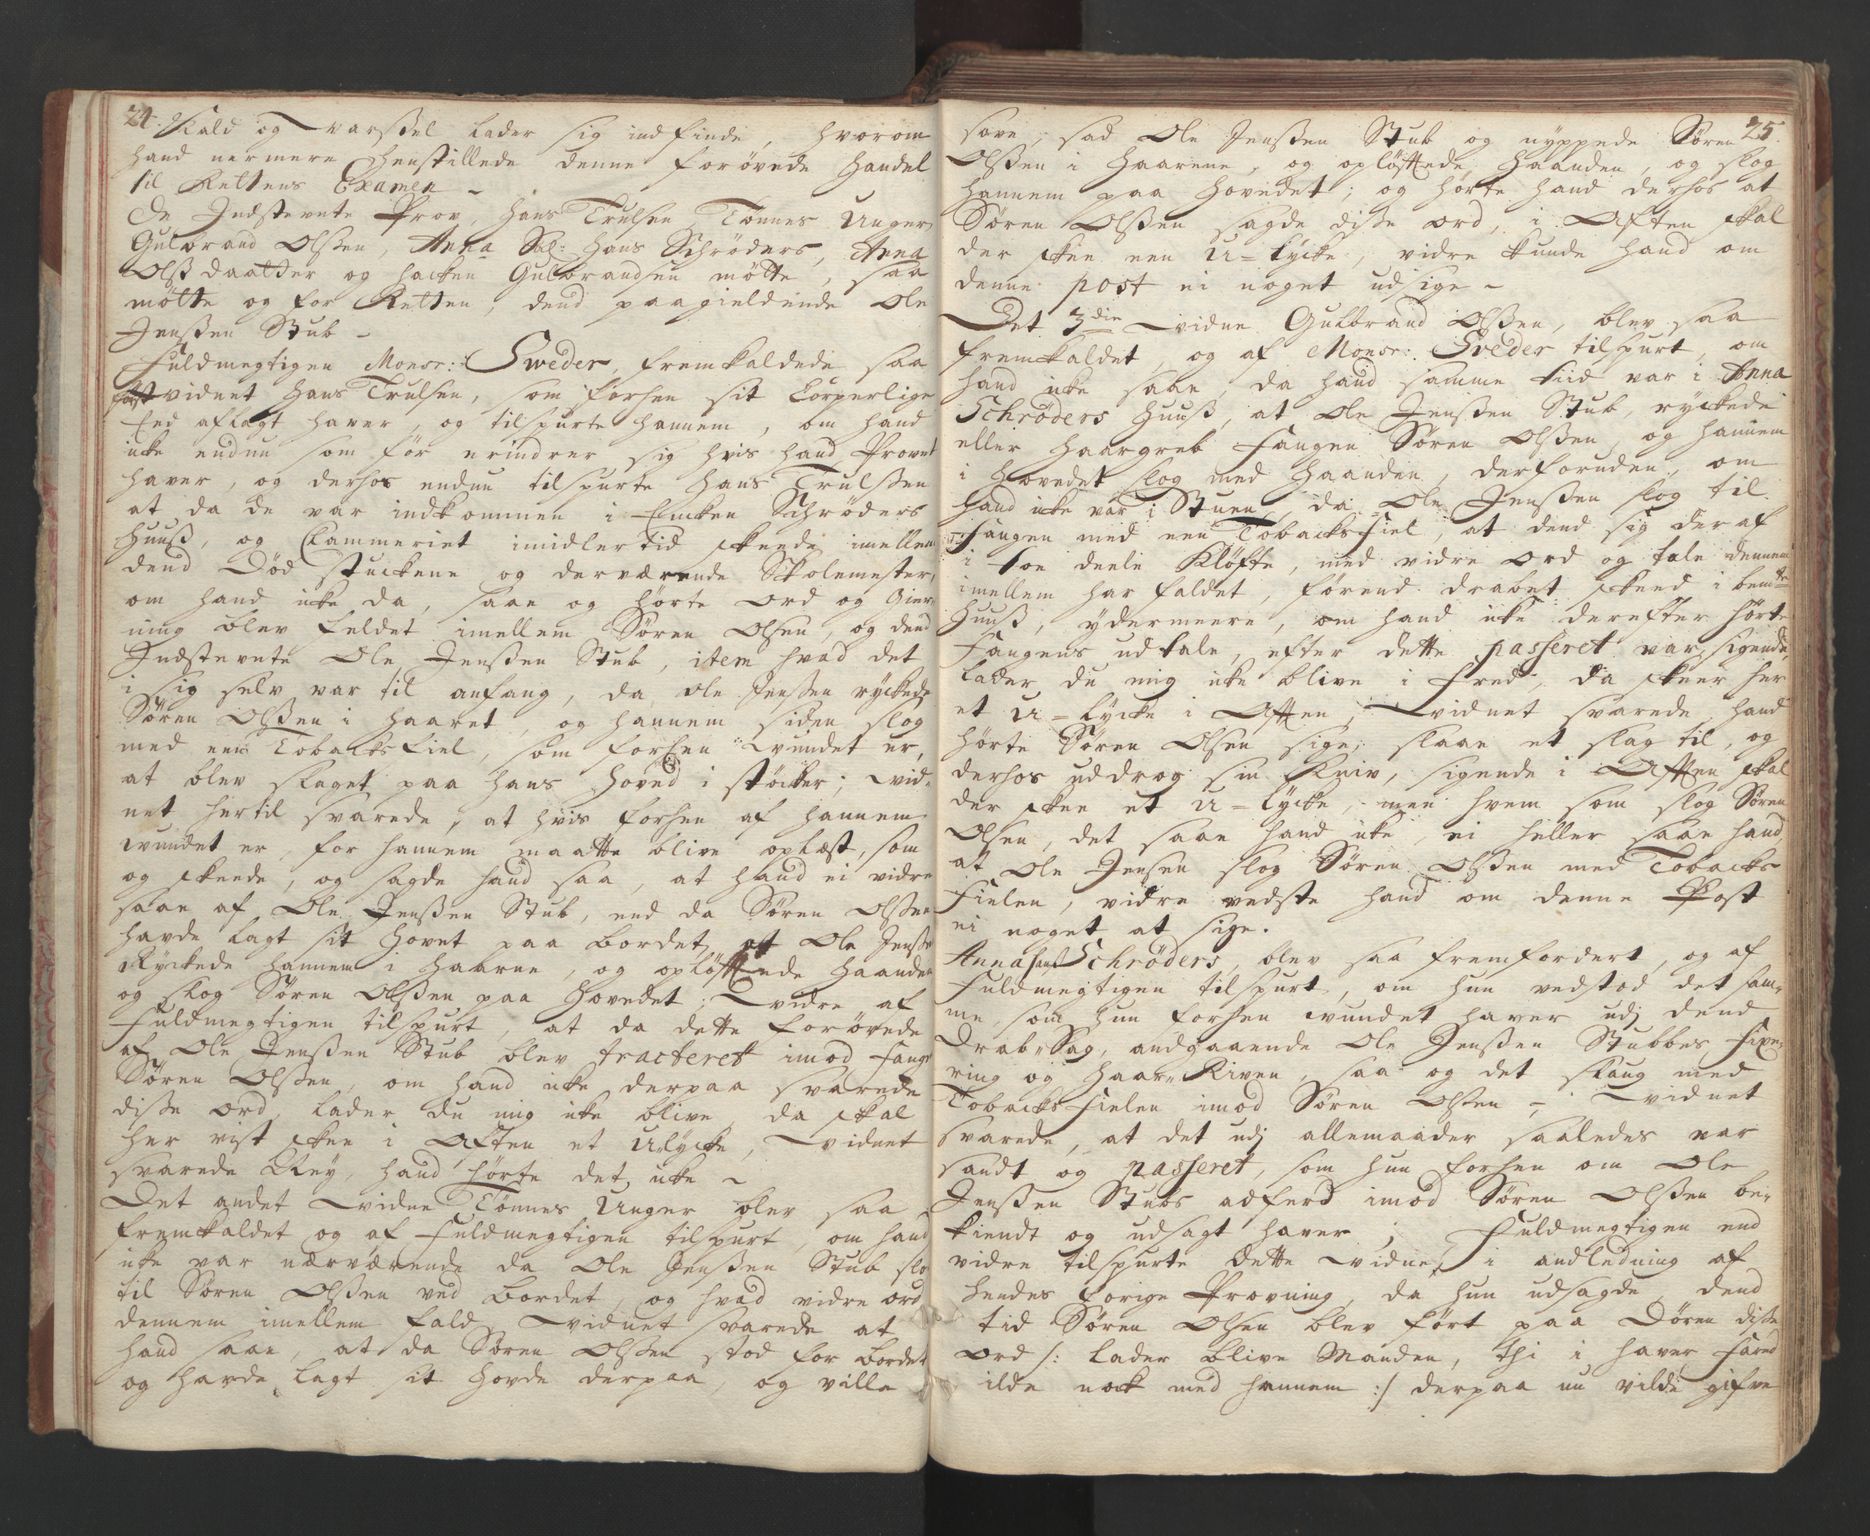 24.
Kald og Varssel lader sig indfinde, hvorom
hand nermere henstillede denne forøvede handel
til Rettens Examen -
De Indstevnte Prov, Hans Trulsen Tønnes Unger
Gulbrand Olssen, Anna Sal: Hans Schrøders, Anna
Olss daatter og hacken Gulbrandsen møtte, saa
møtte og for Retten, dend paagieldende Ole
Jenssen Stub -
Fuldmegtigen Monsr: Sweder, fremkaldede saa
først vidnet Hans Trulsen, som forhen sit Corperlige
Eed aflagt haver, og tilspurte hannem, om hand
icke endnu som før erindrer sig hvis hand Provet
haver, og derhos endnu tilspurte Hans Trulssen
at da de var indkommen i Enken Schrøders
Huuss, og Clammeriet imidlertid skeede imellem
dend Død stuckene og derværende Skolemester,
om hand icke da, saae og hørte ord og Gier-
ning blev feldet imellem Søren Olsen, og dend
Indstevnte Ole Jenssen Stub, item hvad det
i sig selv var til anfang, da Ole Jenssen ryckede
Søren Olssen i haaret, og hannem siden slog
med een Tobacks fiel, som forhen vundet er,
at blev slaget paa hans hoved i støcker; Vid-
net hertil svarede, at hvis forhen af hannem
vundet er, for hannem maatte blive oplæst, som
og skeede, og sagde hand saa, at hand ei vidre
saae af Ole Jenssen Stub, end da Søren Olssen
havde lagt sit Hovet paa bordet, at Ole Jenssen
Ryckede hannem i Haarene, og opløftede haanden
og slog Søren Olssen paa hovedet; vidre af
Fuldmegtigen tilspurt, at da dette forøvede
af Ole Jenssen Stub blev tracteret imod fangen
Søren Olssen, om hand icke derpaa svarede
disse ord, lader du mig icke blive, da skal
her vist skee i Aften et Ulycke, Vidnet
svarede Ney, hand hørte det icke -
Det andet Vidne Tønnes Unger blev saa
fremkaldet og af Fuldmegtigen tilspurt, om hand
icke var nærværende da Ole Jenssen Stub slog
til Søren Olssen ved bordet, og hvad vidre ord
dennem imellem fald, Vidnet svarede at
hand saae, at da Søren Olssen stod for bordet
og havde lagt sit Hovde derpaa, og ville
25.
sove, sad Ole Jenssen Stub og nyppede Søren
Olssen i Haarene, og opløftede Haanden, og slog
hannem paa Hovedet; og hørte hand derhos at
Søren Olssen sagde disse ord, i Aften skal
der skee een U=lycke, vidre kunde hand om
denne post ei noget udsige -
Det 3die Vidne Gulbrand Olssen, blev saa
fremkaldet, og af Monsr: Sveder tilspurt, om
hand icke saae, da hand samme tiid var i Anna
Schrøders Huuss, at Ole Jenssen Stub, ryckede
eller Haargreb Fangen Søren Olssen, og hannem
i Hovedet slog med Haanden, derforuden, om
hand icke var i Stuen, da Ole Jenssen slog til
Fangen med een Tobacksfiel, at dend sig deraf
i toe deele Kløfte, med vidre ord og tale dennem
imellem har faldet, førend drabet skeed i bemte
Huuss, ydermeere, om hand icke derefter hørte
Fangens udtale, efter dette passeret var, sigende,
lader du mig icke blive i fred, da skeer her
et U=lycke i Aften, Vidnet svarede hand
hørte Søren Olsen sige, slaae et slag til, og
derhos uddrog sin Kniv, sigende i Aften skal
der skee et U=lycke, men hvem som slog Søren
Olsen, det saae hand icke ei heller saae hand
at Ole Jensen slog Søren Olssen med Tobacks
Fielen, vidre vedste hand om denne Post
ei noget at sige.
Anna Hans Schrøders, blev saa fremfordert, og af
Fuldmegtigen tilspurt, om hun vedstod det sam-
me, som hun forhen vundet haver udj dend
Drab-Sag, andgaaende Ole Jenssen Stubbes Fixe-
ring og Haar-Riven, saa og det slaug med
Tobacks fielen imod Søren Olssen - Vidnet
svarede, at det udj allemaader saaledes var
sandt og passeret, som hun forhen om Ole
Jenssen Stubs adferd imod Søren Olssen be-
kiendt og udsagt haver, Fuldmegtigen end
vidre tilspurte dette Vidne, i andledning af
hendes forige Provning, da hun udsagde, dend
tid Søren Olsen blev ført paa Døren disse
ord /: lader blive Manden, thi i haver faret
ilde nock med hannem :/ derpaa nu vilde gifve